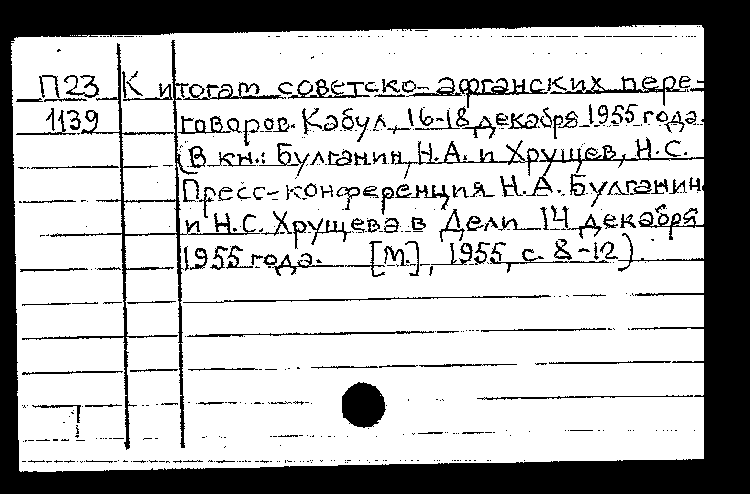 П23 К итогам советско-афганских пере-
1139 говоров. Кабул, 16-18 декабря 1955 года.
(В кн.: Булганин, Н.А. и Хрущев, Н.С.
Пресс-конференция Н.А. Булганина
и Н.С. Хрущева в Дели 14 декабря
1955 года. [М.], 1955, с. 8-12).